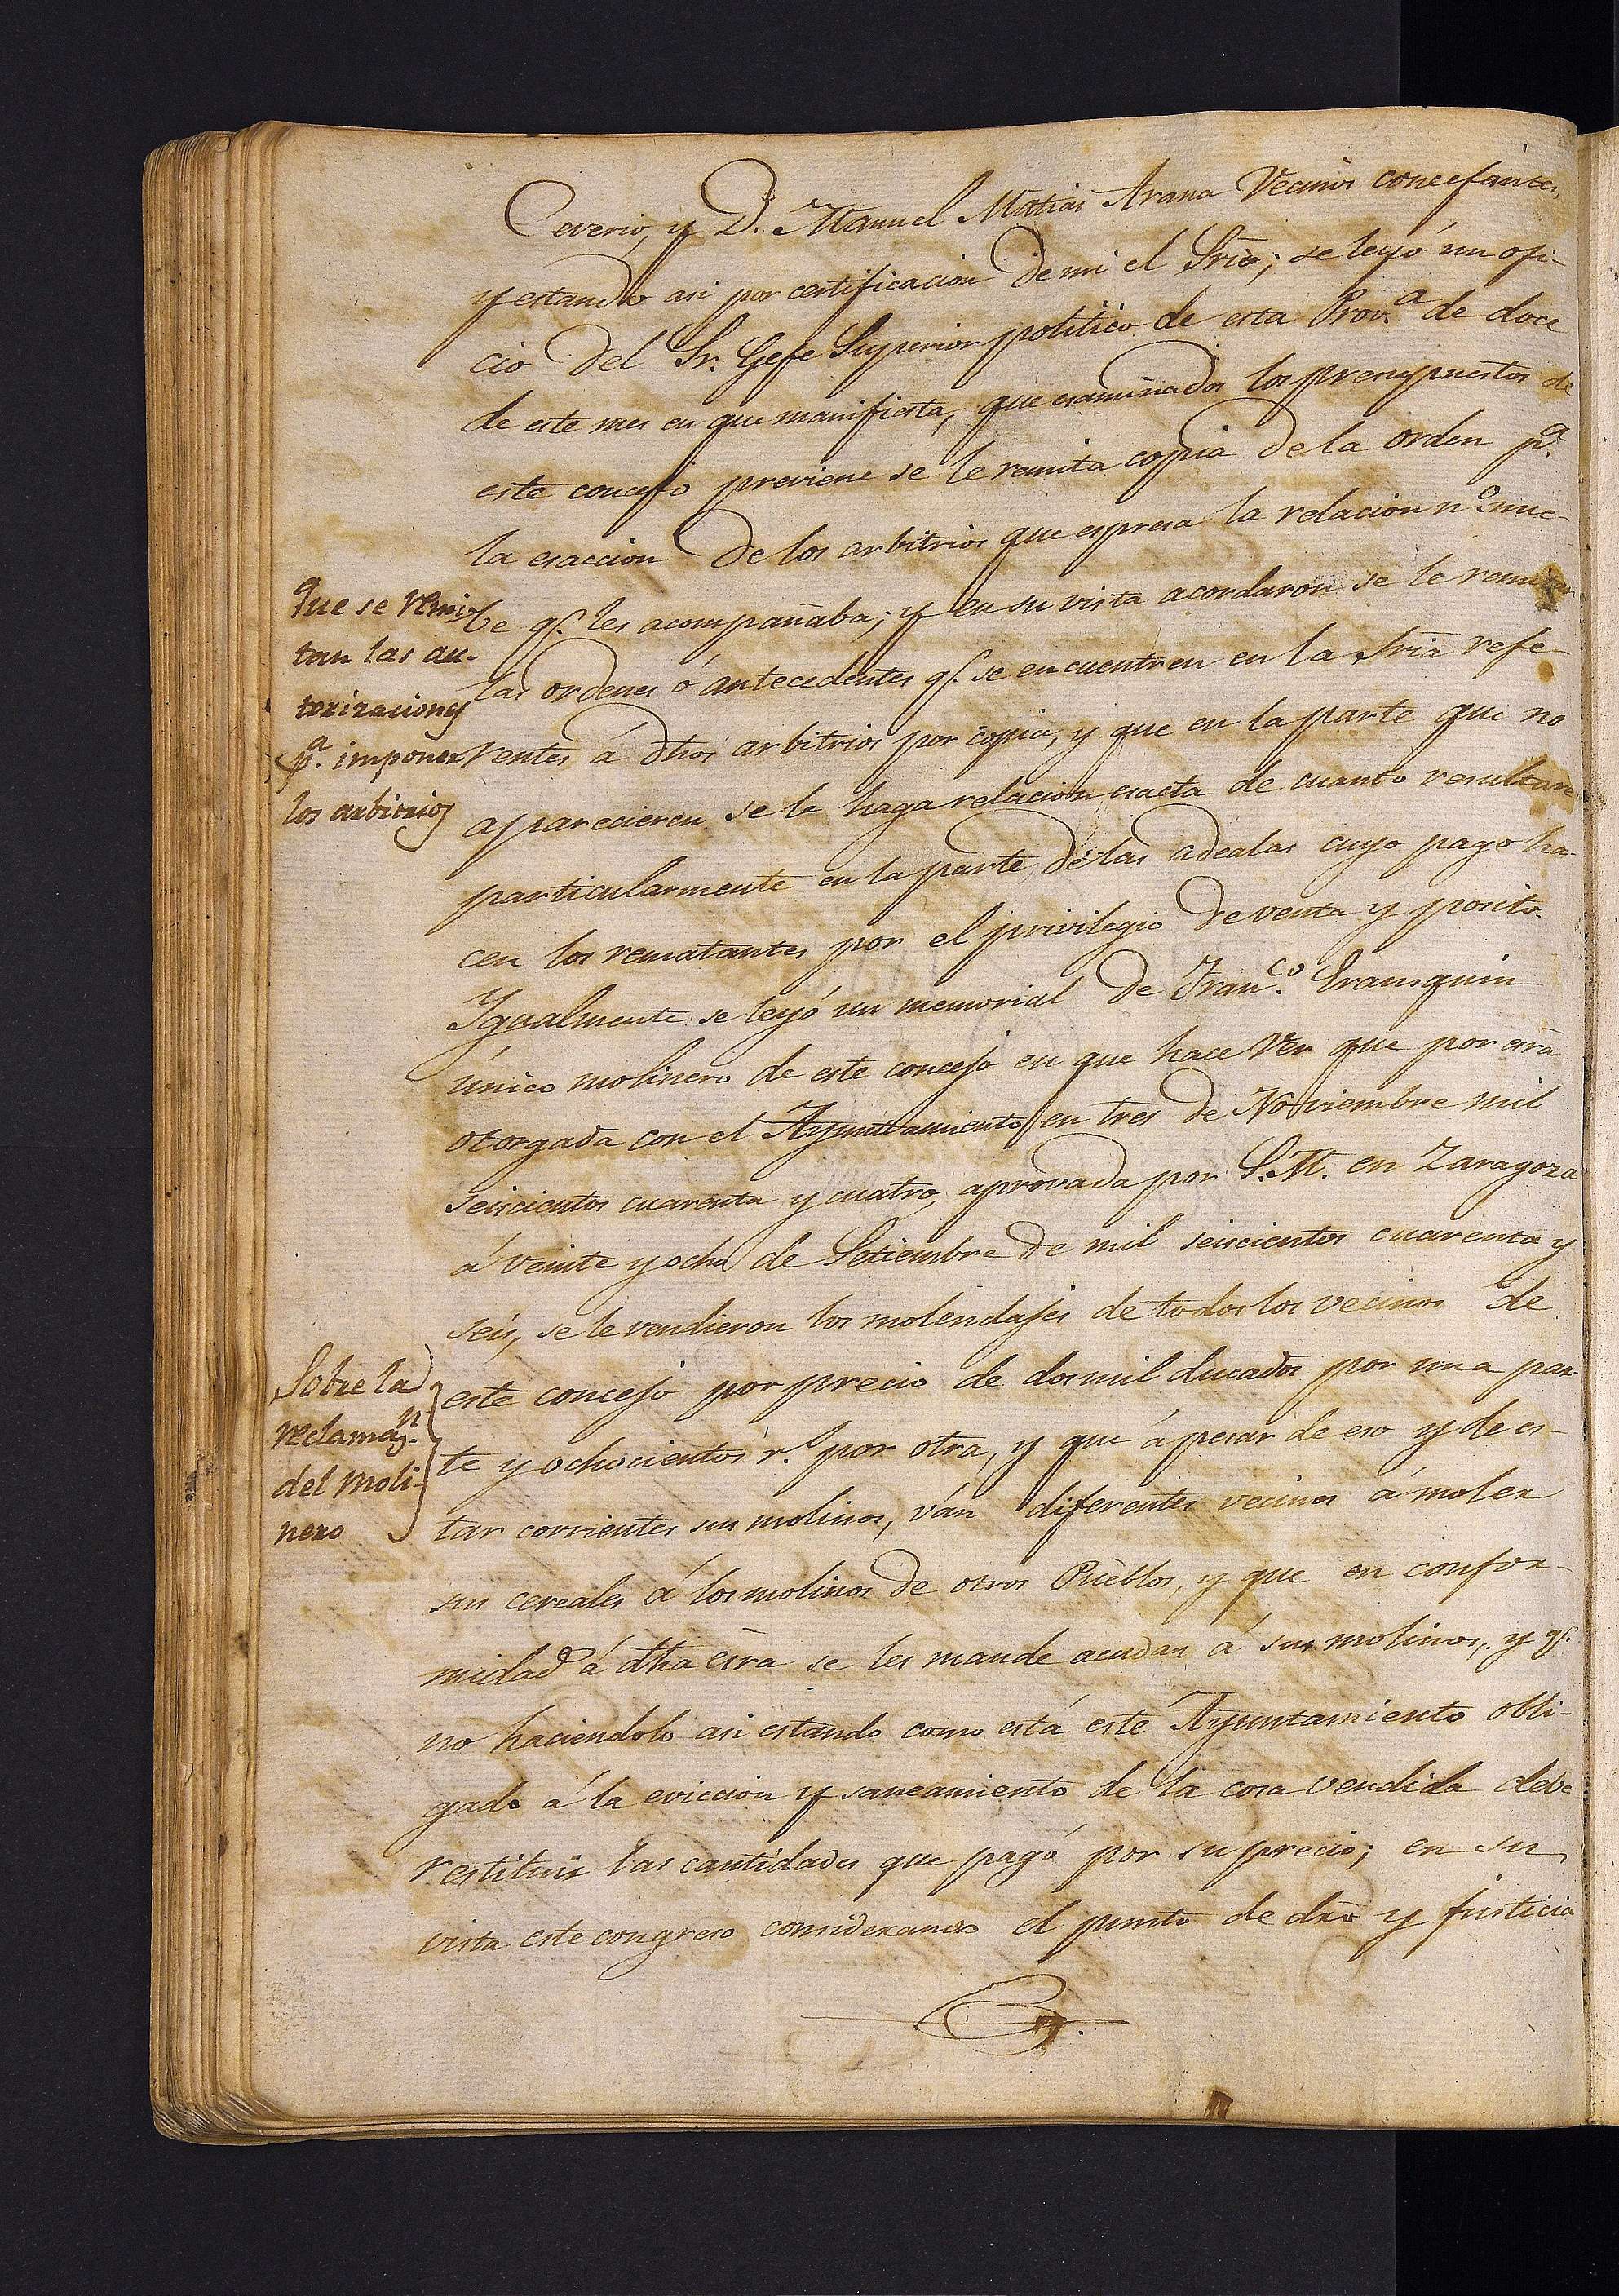 Ceverio, y D. Manuel Matias Arana Vecinos concejantes,
y estando asi por certificacion de mi el Srio; se leyó un ofi-
cio del Sr. Gefe Superior politico de esta Prov.ª de doce
de este mes en que manifiesta, que esaminados los presupuestos de
este concejo previene se le remita copia de la orden p.ª
la esaccion de los arbitrios que espresa la relacion n.º nue-
Que se remi-
tan las au-
torizaciones
p.ª imponer
los arbitrios
be q.e les acompañaba; y en su vista acordaron se le remitan
las ordenes ó antecedentes q.e se encuentren en la Sria refe-
rentes á dhos arbitrios por copia, y que en la parte que no
aparecieren se le haga relacion esacta de cuanto resultare
particularmente en la parte de las adealas cuyo pago ha-
cen los rematantes por el privilegio de venta y posito.
Ygualmente se leyó un memorial de Fran.co Eransquin
único molinero de este concejo en que hace ver que por esrã
otorgada con el Ayuntamiento en tres de Noviembre mil
seiscientos cuarenta y cuatro, aprovada por S.M. en Zaragoza
á veinte y ocho de Setiembre de mil seiscientos cuarenta y
seis, se le vendieron los molendajes de todos los vecinos de
Sobre la
reclamaz.n
del moli-
nero
este concejo por precio de dos mil ducados por una par-
te y ochocientos r.s por otra, y que á pesar de eso y de es-
tar corrientes sus molinos, ván diferentes vecinos á moler
sus cereales á los molinos de otros Pueblos, y que en confor-
midad á dha esra se les mande acudan á sus molinos, y q.e
no haciendolo asi estando como está este Ayuntamiento obli-
gado á la eviccion y saneamiento de la cosa vendida debe
restituir las cantidades que pagó por su precio; en su
vista este congreso considerando el punto de dro y justicia